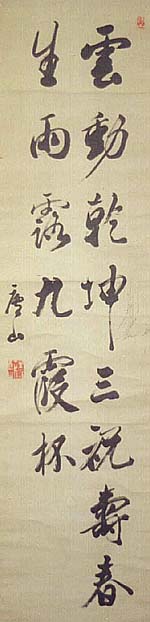 雲動乾坤三祝壽春
生雨露九霞杯
唐山